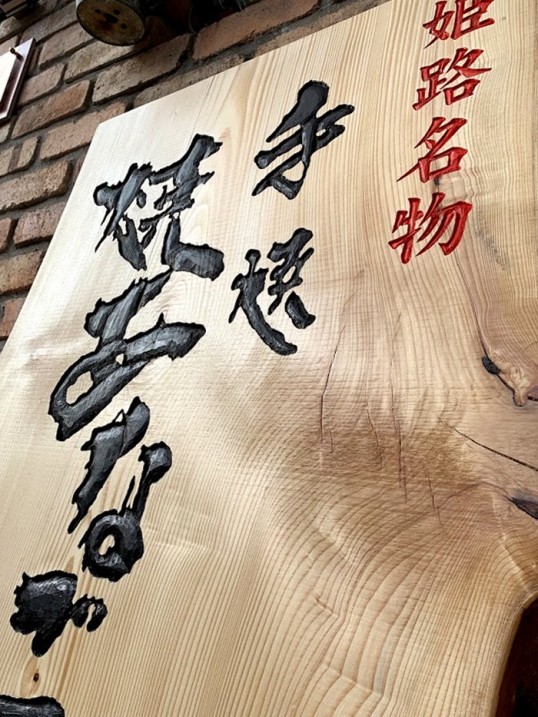 姫路名物
手
焼あなご